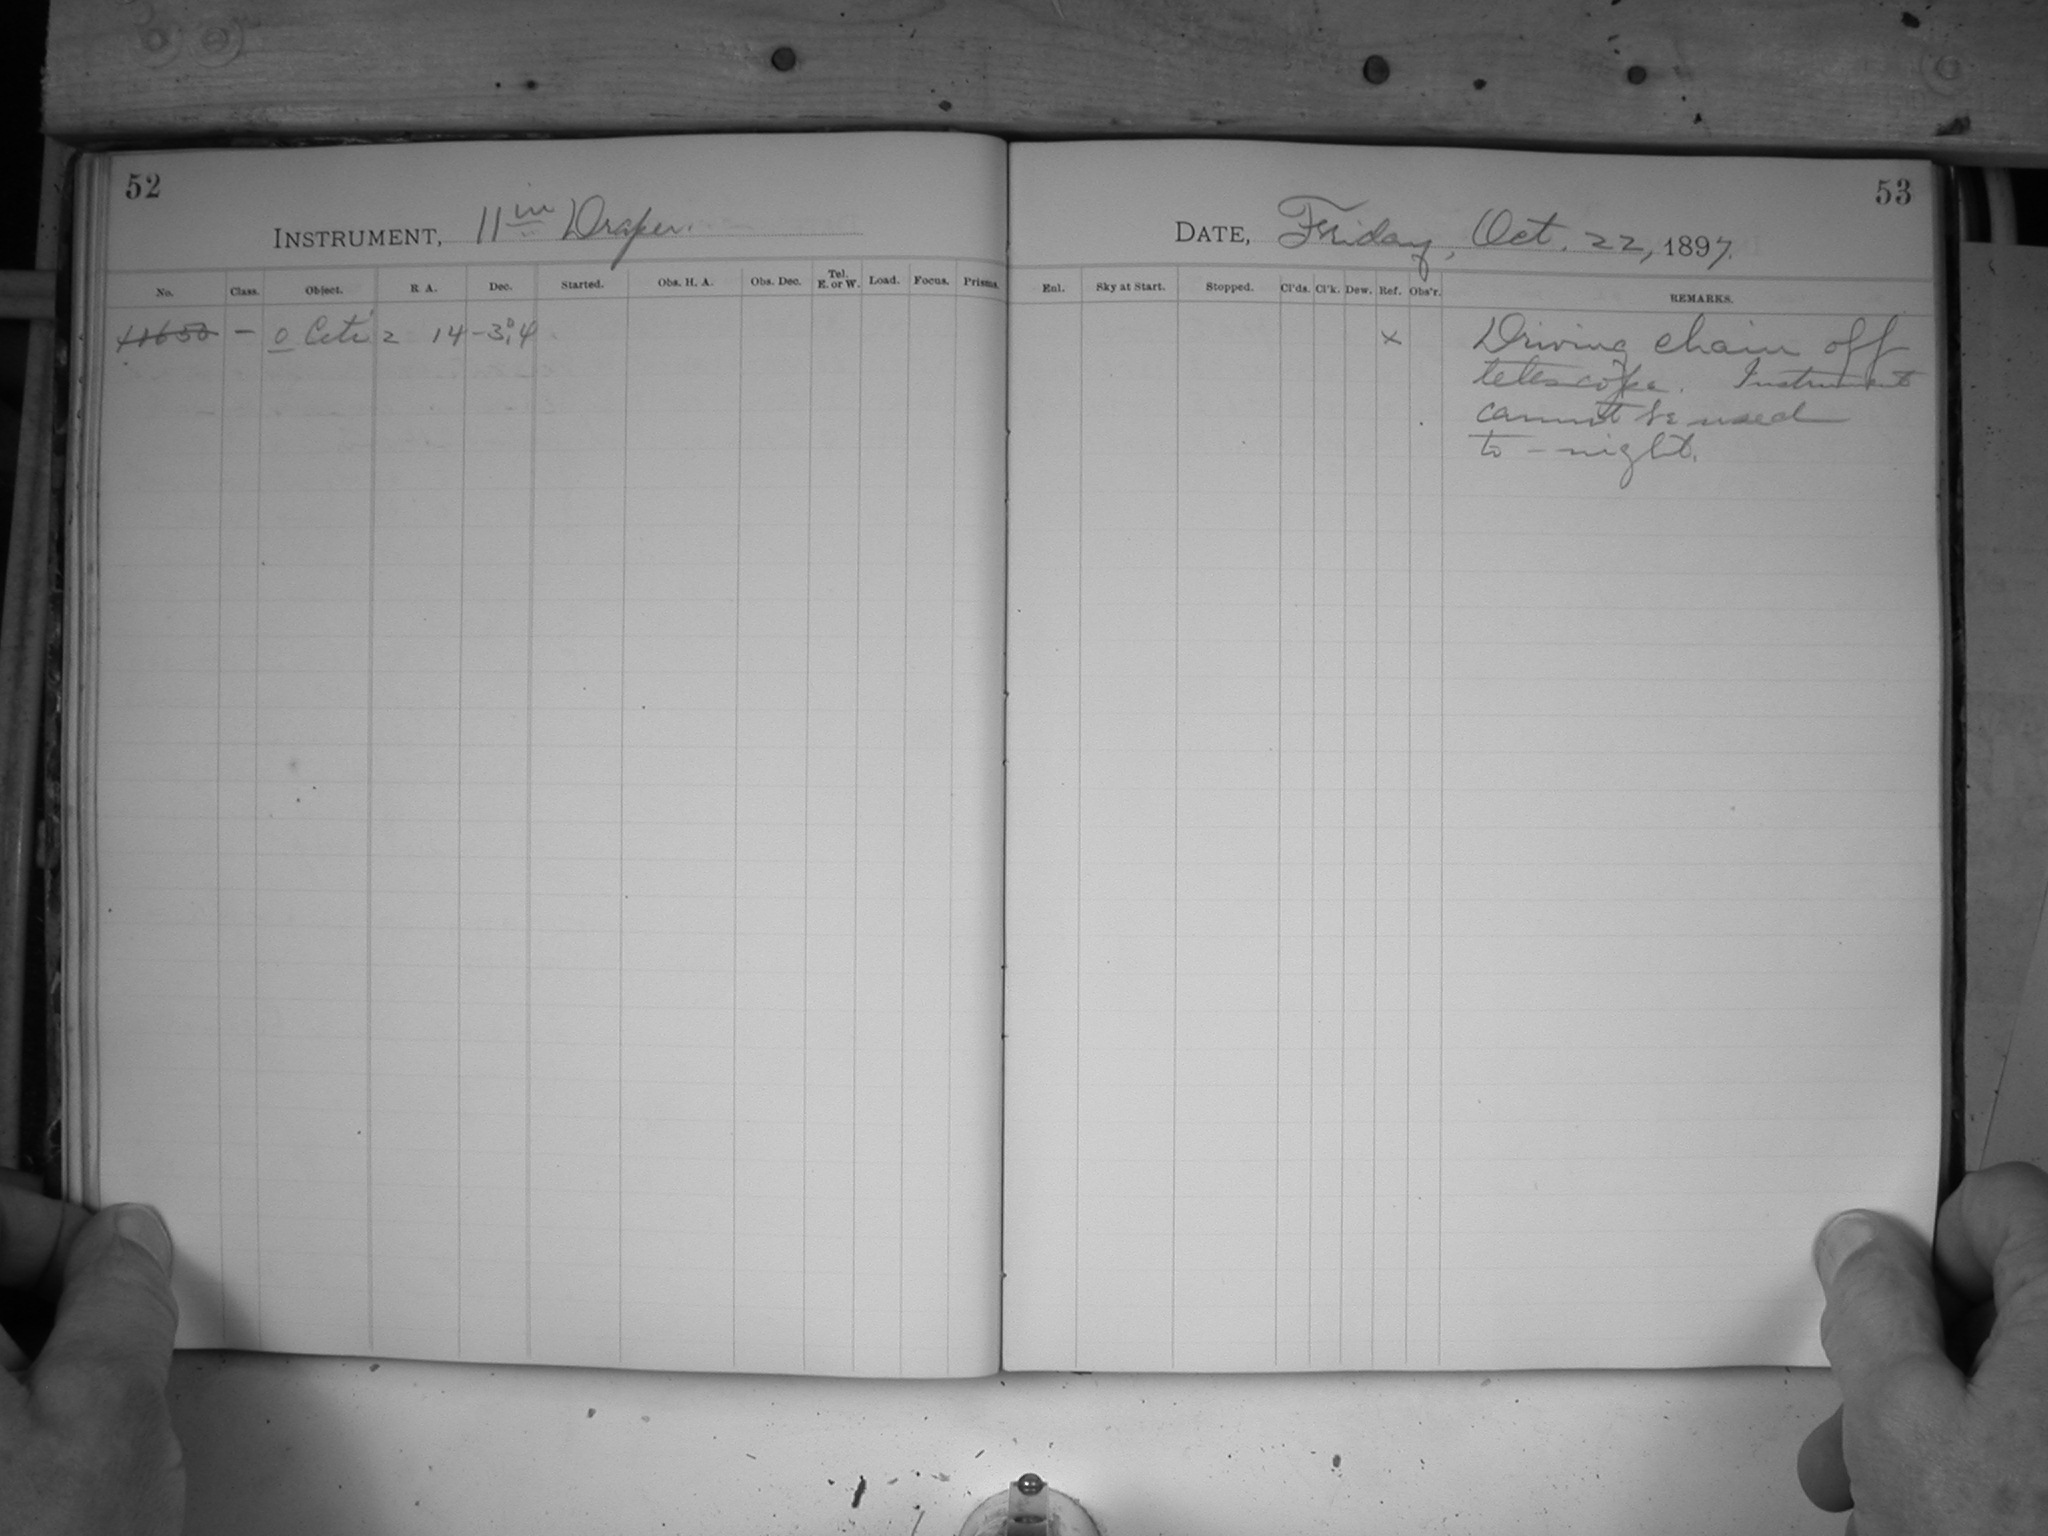 52
INSTRUMENT, 11in Draper.
No. Class. Object. R A. Dec. Started. Obs. H. A. Obs. Dec. Tel. E. or W. Load. Focus. Prisms.
11650 – o Ceti 2 14 –3°.4
53
DATE, Friday, Oct. 22, 1897.
Enl. Sky at Start. Stopped. Cl'ds. Cl'k. Dew. Ref. Obs'r. REMARKS.
x Driving chain off
telescope. Instrument
cannot be used
to-night.